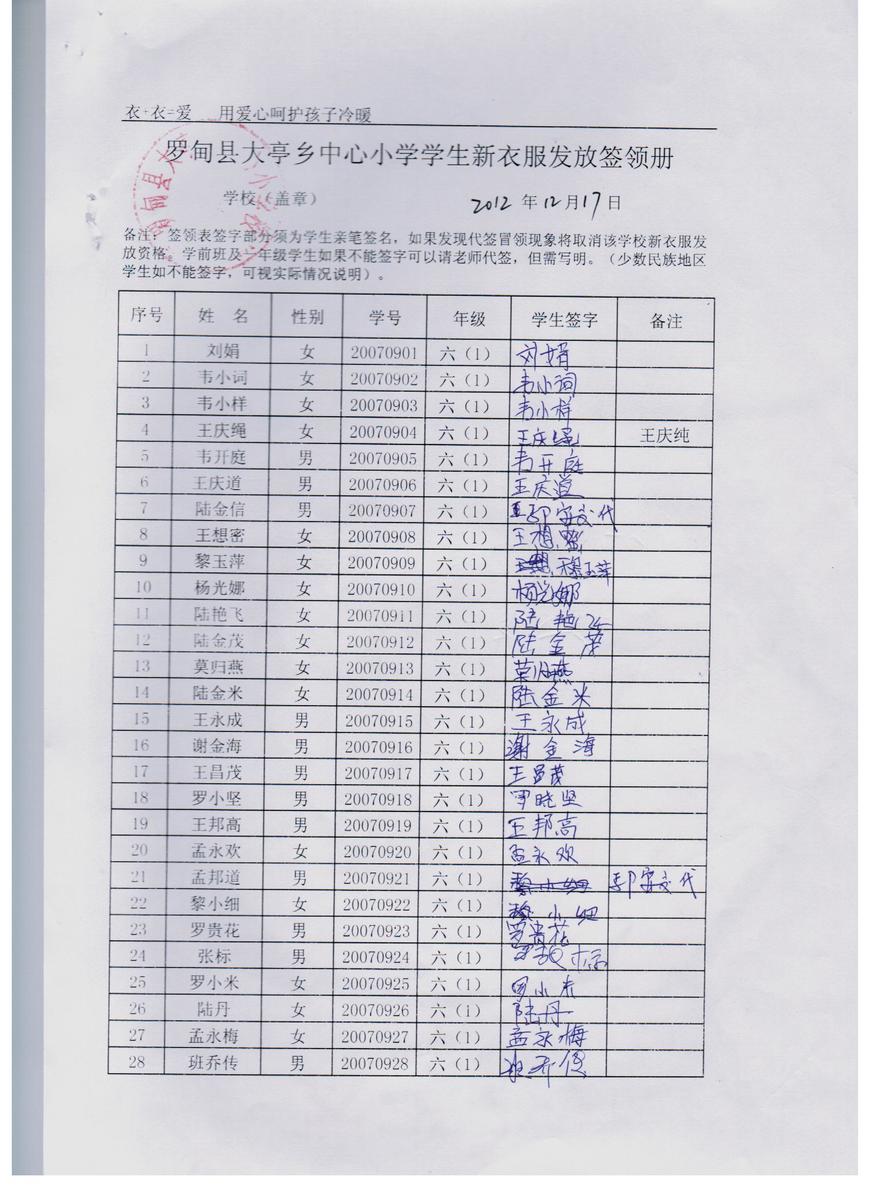 衣+衣=爱 用爱心呵护孩子冷暖
罗甸县大亭乡中心小学学生新衣服发放签领册
学校（盖章） 2012 年 12 月 17 日
备注：签领表签字部分须为学生亲笔签名，如果发现代签冒领现象将取消该学校新衣服发
放资格。学前班及一年级学生如果不能签字可以请老师代签，但需写明。（少数民族地区
学生如不能签字，可视实际情况说明）。
序号 姓 名 性别 学号 年级 学生签字 备注
1 刘娟 女 20070901 六（1） 刘娟
2 韦小词 女 20070902 六（1） 韦小词
3 韦小样 女 20070903 六（1） 韦小样
4 王庆绳 女 20070904 六（1） 王庆绳 王庆纯
5 韦开庭 男 20070905 六（1） 韦开庭
6 王庆道 男 20070906 六（1） 王庆道
7 陆金信 男 20070907 六（1） 安文代
8 王想密 女 20070908 六（1） 王想密
9 黎玉萍 女 20070909 六（1） 玉萍
10 杨光娜 女 20070910 六（1） 杨光娜
11 陆艳飞 女 20070911 六（1） 陆艳飞
12 陆金茂 女 20070912 六（1） 陆金茂
13 莫归燕 女 20070913 六（1） 莫归燕
14 陆金米 女 20070914 六（1） 陆金米
15 王永成 男 20070915 六（1） 王永成
16 谢金海 男 20070916 六（1） 谢金海
17 王昌茂 男 20070917 六（1） 王昌茂
18 罗小坚 男 20070918 六（1） 罗晓坚
19 王邦高 男 20070919 六（1） 王邦高
20 孟永欢 女 20070920 六（1） 孟永欢
21 孟邦道 男 20070921 六（1） 黎小细 安文代
22 黎小细 女 20070922 六（1） 黎小细
23 罗贵花 男 20070923 六（1） 罗贵花
24 张标 男 20070924 六（1） 标
25 罗小米 女 20070925 六（1） 罗小米
26 陆丹 女 20070926 六（1） 陆丹
27 孟永梅 女 20070927 六（1） 孟永梅
28 班乔传 男 20070928 六（1） 班乔传